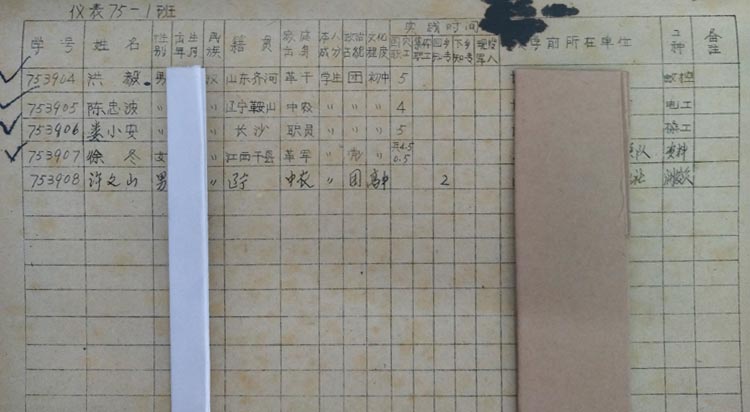 仪表75-1班
学号 姓名 性别 出生年月 民族 籍贯 家庭出身 本人成分 政治面貌 文化程度 实践时间 学前所在单位 工种 备注
753904 洪毅 男 汉 山东齐河 革干 学生 团 初中 5
753905 陈忠波 〃 〃 辽宁鞍山 中农 〃 〃 〃 4 电工
753906 娄小安 〃 〃 长沙 职员 〃 〃 〃 5
753907 徐冬 女 〃 江西于县 革军 〃 〃 队 资料
753908 许文山 男 〃 辽宁 中农 〃 团 高中 2 社